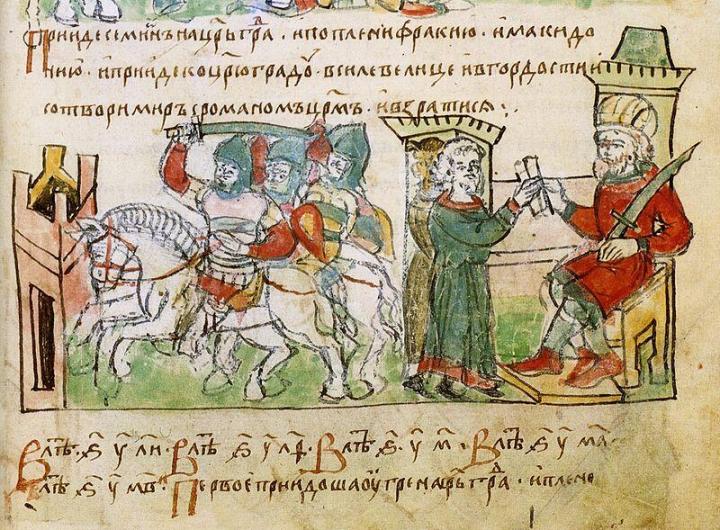 Прииде семиѡнъ на цр҃ьгра . и поплени фракию . и макидо
нию . и прииде ко цр҃юградоу . в силе велице и в гордости и
сотвори миръ с романомъ цр҃мъ . и възратися :
В лѣт . ѕ҃ у л и . В лѣт ѕ у л ѳ . В лѣт ѕ . у м . В лѣт ѕ у м а .
В лѣт ѕ у м в . Первое приидоша оугре на цр҃ьгра . и плене